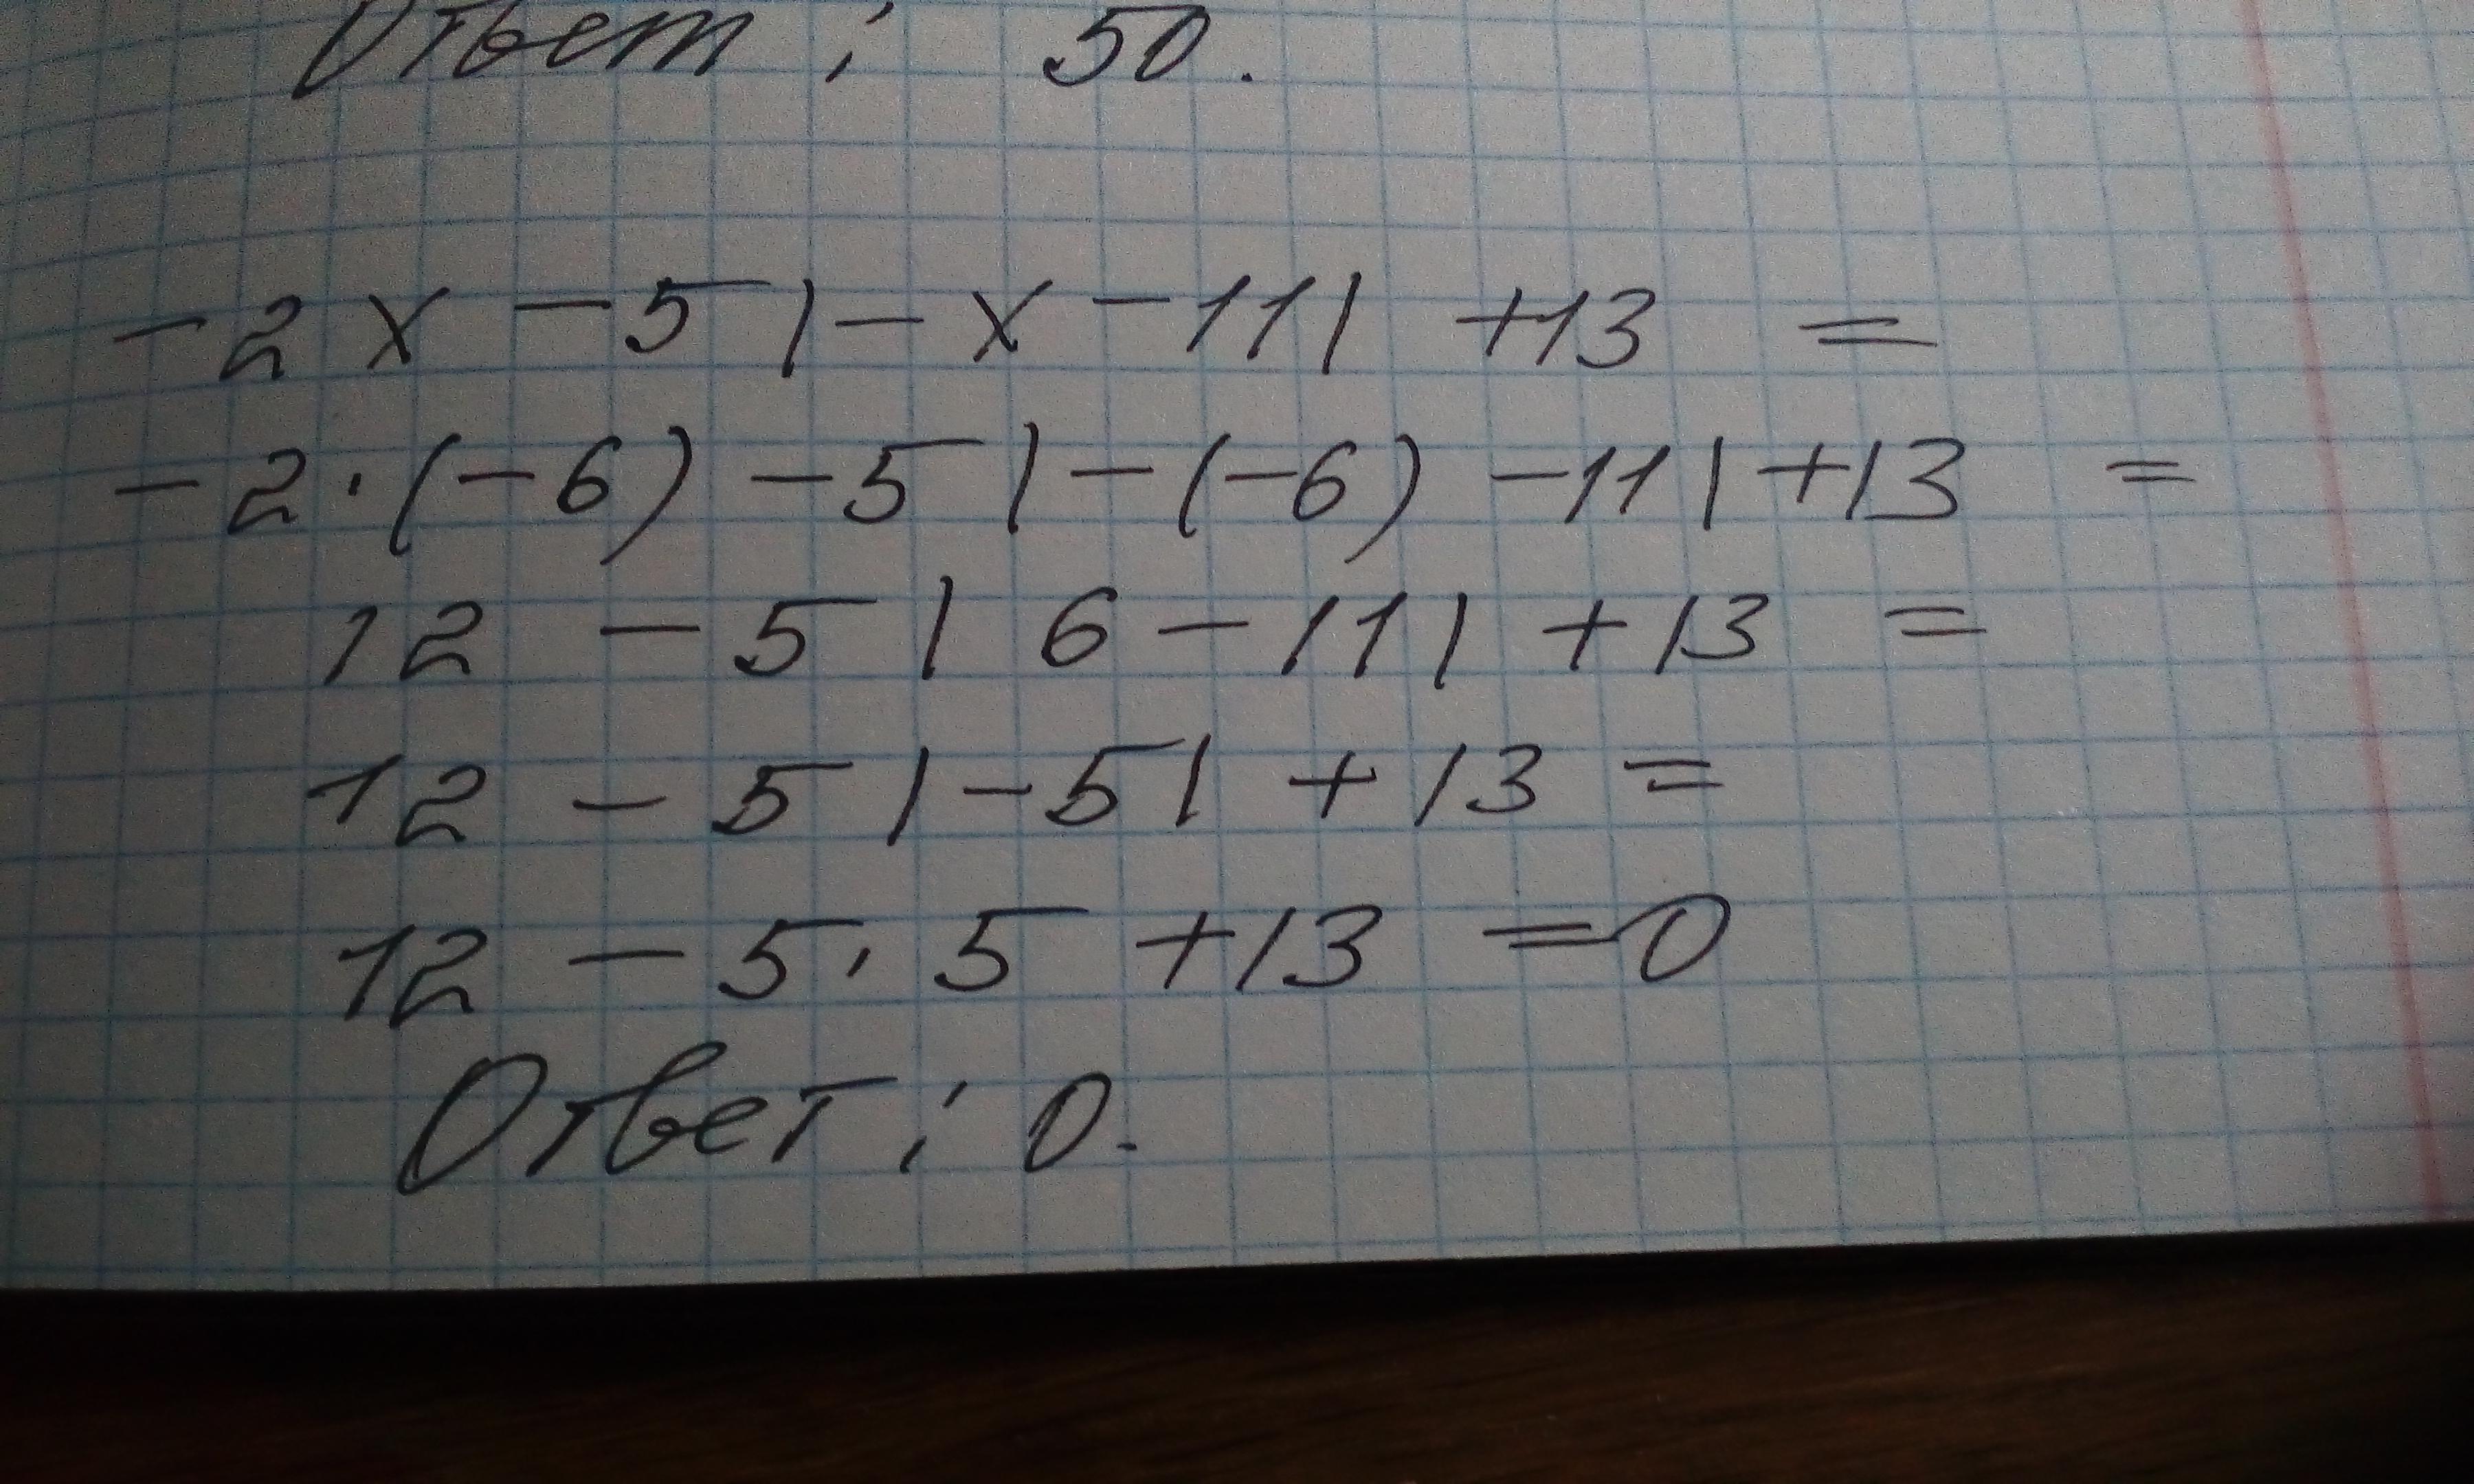 Ответ: 50.
-2x -5|-x -11| +13 =
-2·(-6) -5|-(-6) -11|+13 =
12 -5|6-11| +13 =
12 - 5|-5| + 13 =
12 - 5·5 +13 =0
Ответ: 0.